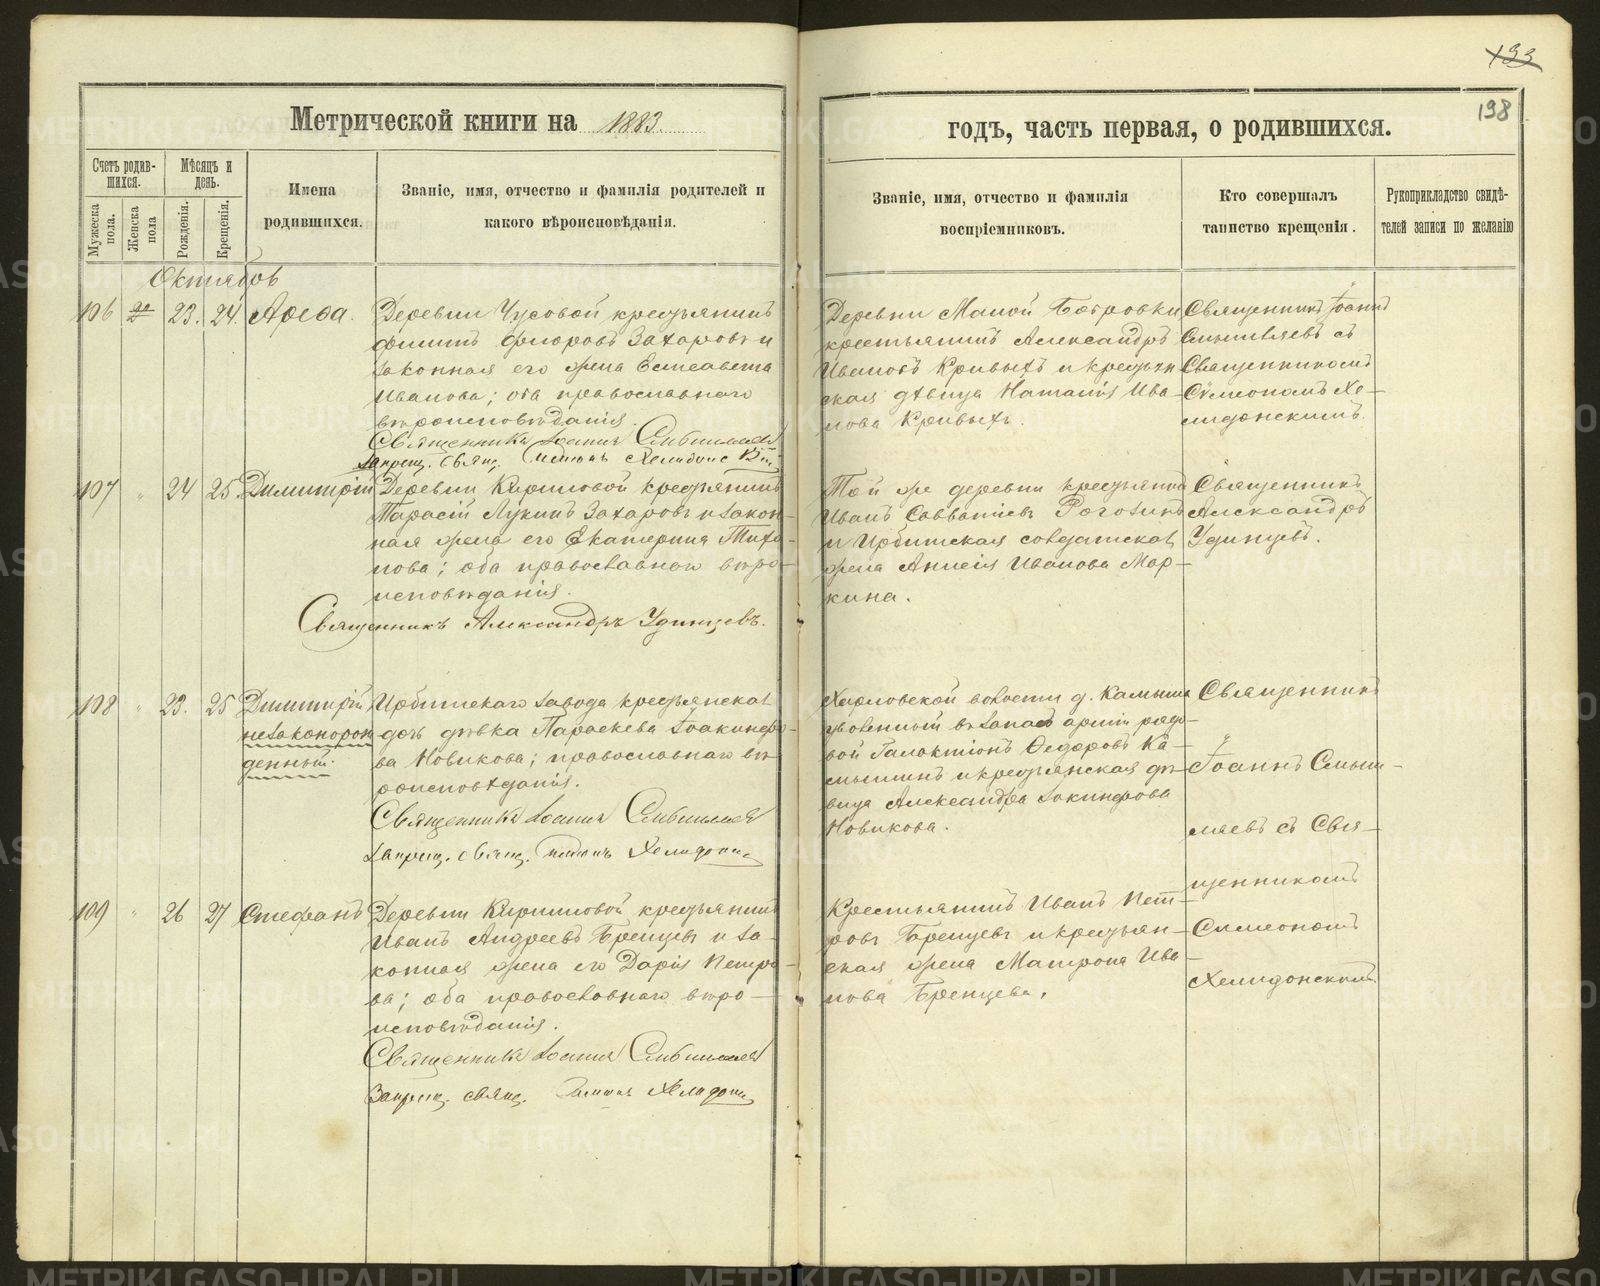 133
138
Метрической книги на 1883.
годъ, часть первая, о родившихся.
Счетъ родив-
шихся.
Мужеска
пола.
Женска
пола
Мѣсяцъ и
день.
Рожденія.
Крещенія.
Имена
родившихся.
Званіе, имя, отчество и фамилія родителей и
какого вѣроисповѣданія.
Званіе, имя, отчество и фамилія
воспріемниковъ.
Кто совершалъ
таинство крещенія.
Рукоприкладство свидѣ-
телей записи по желанію
Октябрь
106 23. 24. Арефа.
Деревни Чусовой крестьянинъ
Филипъ Флоровъ Захаровъ и
законная его жена Елисавета
Иванова; оба православнаго
вѣроисповѣданія.
Священникъ Іоаннъ Смышляевъ
Запрещ. Свящ.
Деревни Малой
крестьянинъ Александръ
Ивановъ Кривыхъ и крестьян
ская дѣвица Наталія Ива-
нова Кривыхъ.
Священникъ Іоаннъ
Смышляевъ съ
Священникомъ
Сѵмеономъ Хе-
лидонскимъ.
107 " 24 25. Димитрій
Деревни Кириловой крестьянинъ
Тарасій Лукинъ Захаровъ и закон-
ная жена его Екатерина Тихо-
нова; оба православнаго вѣро-
исповѣданія.
Священникъ Александръ Удинцевъ.
Той же деревни крестьянинъ
Иванъ Савватіевъ Рогозинъ
и Ирбитская солдатская
жена Анисія Иванова Мар-
кина.
Священникъ
Александръ
Удинцевъ.
108 " 23. 25 Димитрій
незаконорож
денный.
Ирбитскаго завода крестьянская
дочь дѣвка Параскева Іоакинфо-
ва Новикова; православнаго вѣ-
роисповѣданія.
Священникъ Іоаннъ Смышляевъ
Запрещ. свящ. Хелидонск
Харловской волости д. Камыши
уволенный въ запасъ арміи рядо-
вой Галактіонъ Ѳедоровъ Ка-
мышинъ и крестьянская дѣ-
вица Александра Іакинфова
Новикова.
Священникъ
Іоаннъ Смыш-
ляевъ съ Свя-
щенникомъ
Симеономъ
Хелидонскимъ
109 " 26 27 Стефанъ
Деревни Кириловой крестьянинъ
Иванъ Андреевъ Бренцевъ и за-
конная жена его Дарія Петро-
ва; оба православнаго вѣро-
исповѣданія.
Священникъ Іоаннъ Смышляевъ
Запрещ. свящ. Хелидонск
Крестьянинъ Иванъ Пет-
ровъ Бренцевъ и крестьян-
ская жена Матрона Ива-
нова Бренцева.
METRIKI.GASO-URAL.RU